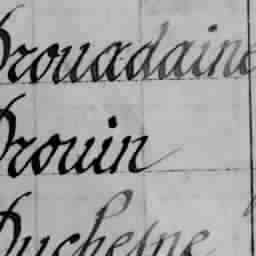 Drouadaine
Drouin
Duchesne